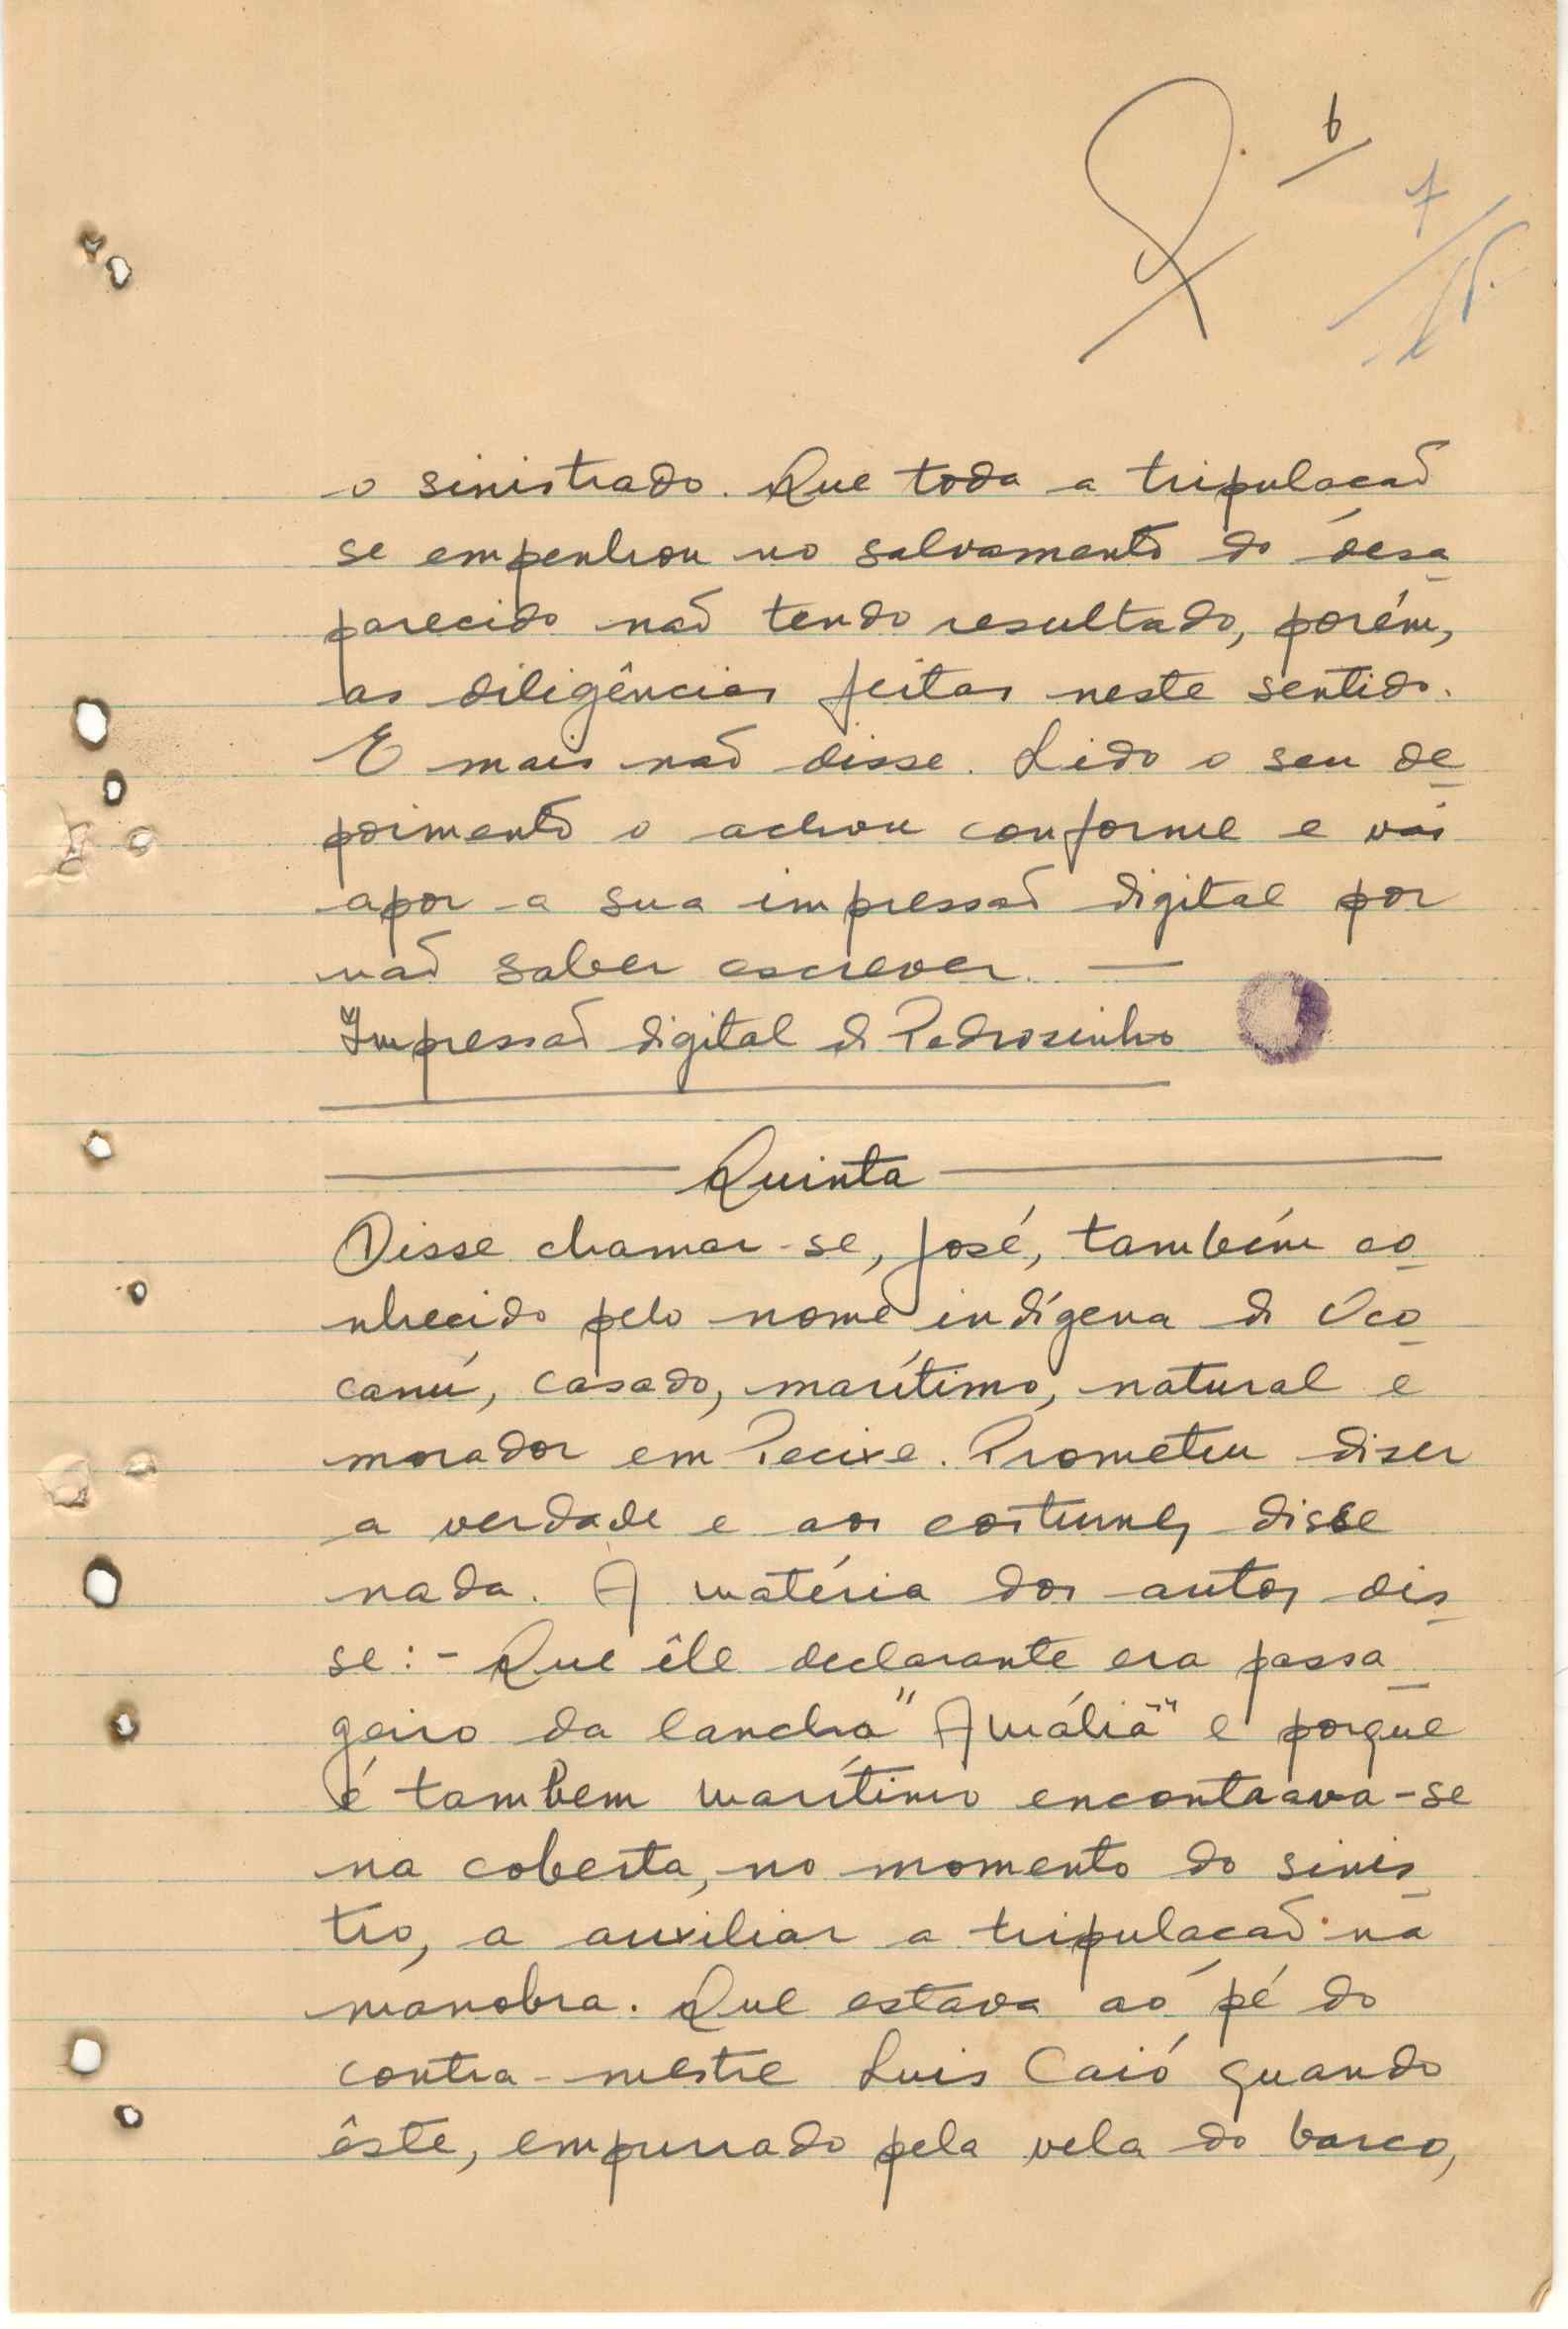 6
7
o sinistrado. Que toda a tripulacaõ
se empenhou no salvamento do desa
parecido naõ tendo resultado, porém,
as diligências feitas neste sentido.
E mais naõ disse. Lido o seu de
poimento o achou conforme e vai
apor a sua impressaõ digital por
naõ saber escrever. —
Impressaõ digital de Pedrosinho
Quinta
Disse chamar-se, José, também co
nhecido pelo nome indígena de Oco
canú, casado, marítimo, natural e
morador em Pecixe. Prometeu diser
a verdade e aos costumes disse
nada. A matéria dos autos dis
se:- Que êle declarante era passa
geiro da lancha "Amália" e porque
é tambem marítimo encontrava-se
na coberta, no momento do sinis
tro, a auxiliar a tripulacaõ na
manobra. Que estava ao pé do
contra-mestre Luis Caió quando
êste, empurrado pela vela do barco,